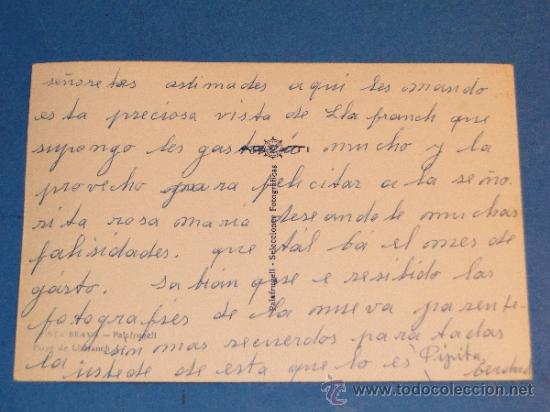 señoretas astimades aqui les mando
esta preciosa vista de Lla franch que
supongo les gastará mucho y la
provecho para felicitar a la seño.
rita rosa maria deseandole muchas
falisidades. que tál bá el mes de
gásto. sabian que e resibido las
fotografies de la nueva parente-
la sin mas recuerdos para todas
ustede de esta que lo es Pipita
COSTA BRAVA - Palafrugell
Playa de Llafranch
Palafrugell - Selecciones Fotográficas
todocoleccion.net